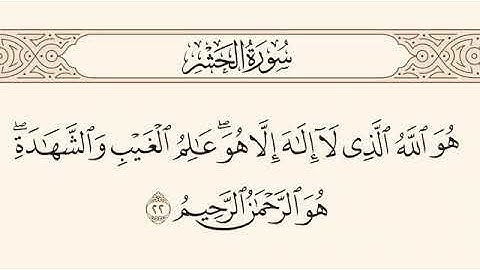 سُورَةُ الحَشْرِ
هُوَ ٱللَّهُ ٱلَّذِى لَآ إِلَٰهَ إِلَّا هُوَۖ عَٰلِمُ ٱلْغَيْبِ وَٱلشَّهَٰدَةِۖ
هُوَ ٱلرَّحْمَٰنُ ٱلرَّحِيمُ ٢٢